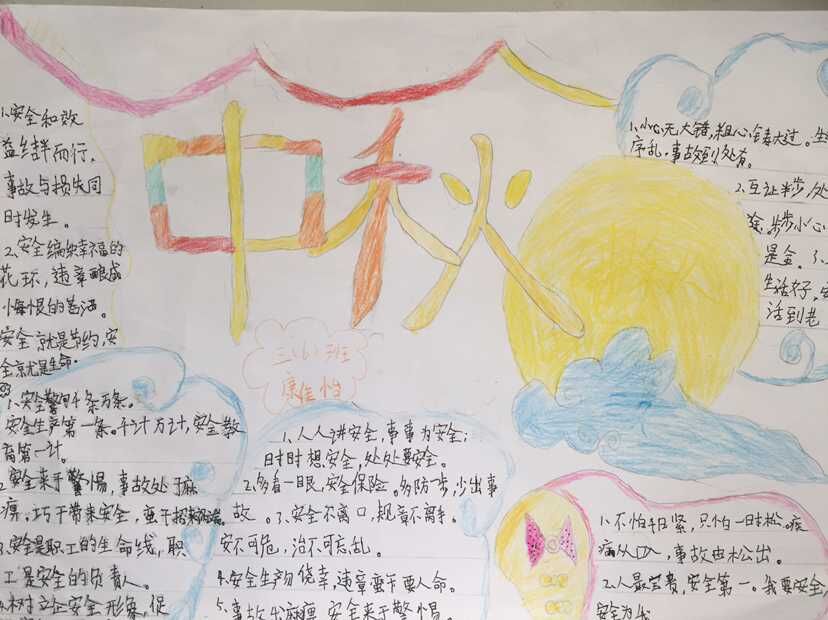 中秋
三(1)班
康佳怡
1.安全和效
益结伴而行,
事故与损失同
时发生。
2.安全编织幸福的
花环,违章酿成
悔恨的苦酒。
安全就是节约,安
全就是生命.
1.安全警句千条万条。
安全生产第一条。千计万计,安全教
育第一计。
2.安全来于警惕,事故处于麻
痹。巧干带来安全,蛮干招来
3.安全是职工的生命线,职
工是安全的负责人。
4.树立正安全形象,促
1、人人讲安全,事事为安全;
时时想安全,处处要安全。
2.多看一眼,安全保险。多防一步,少出事
故。3、安全不离口,规章不离手。
安不可危,治不可忘乱。
4.安全生产勿侥幸,违章蛮干要人命。
5、事故出麻痹,安全来于警惕。
1.小心无大错,粗心铸大过。生
序乱,事故到处有。
2.互让半步,处
除。步步小心
是金。3、
生活好,安
活到老
1.不怕千日紧,只怕一时松。疾
病从口入,事故由松出。
2.人最宝贵,安全第一。我要安全,
安全为我